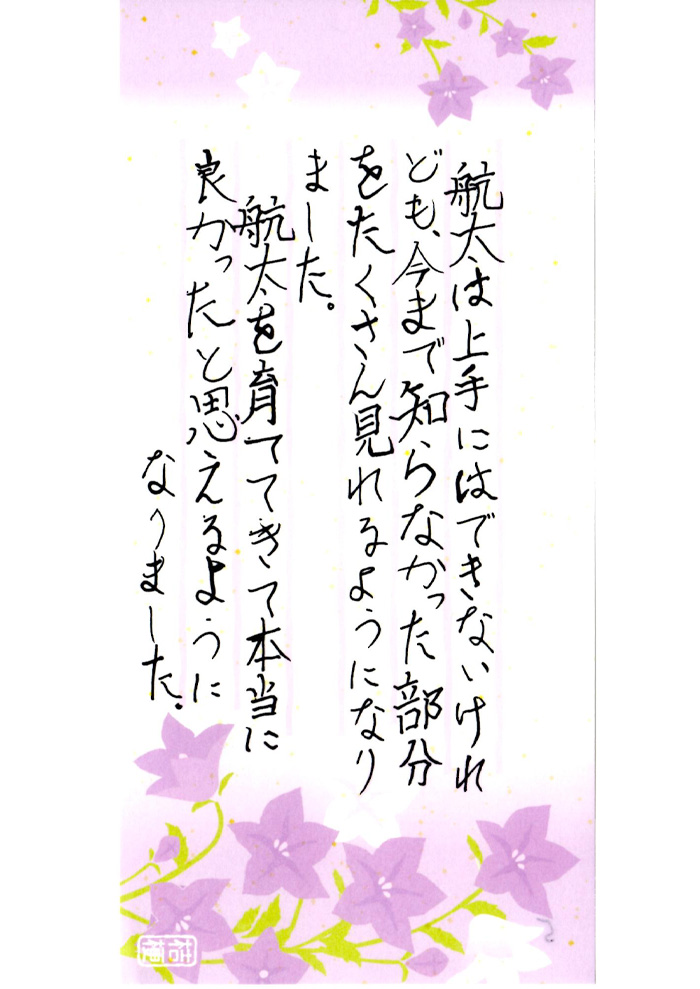 航太は上手にはできないけれ
ども、今まで知らなかった部分
をたくさん見れるようになり
ました。
航太を育ててきて本当に
良かったと思えるように
なりました。